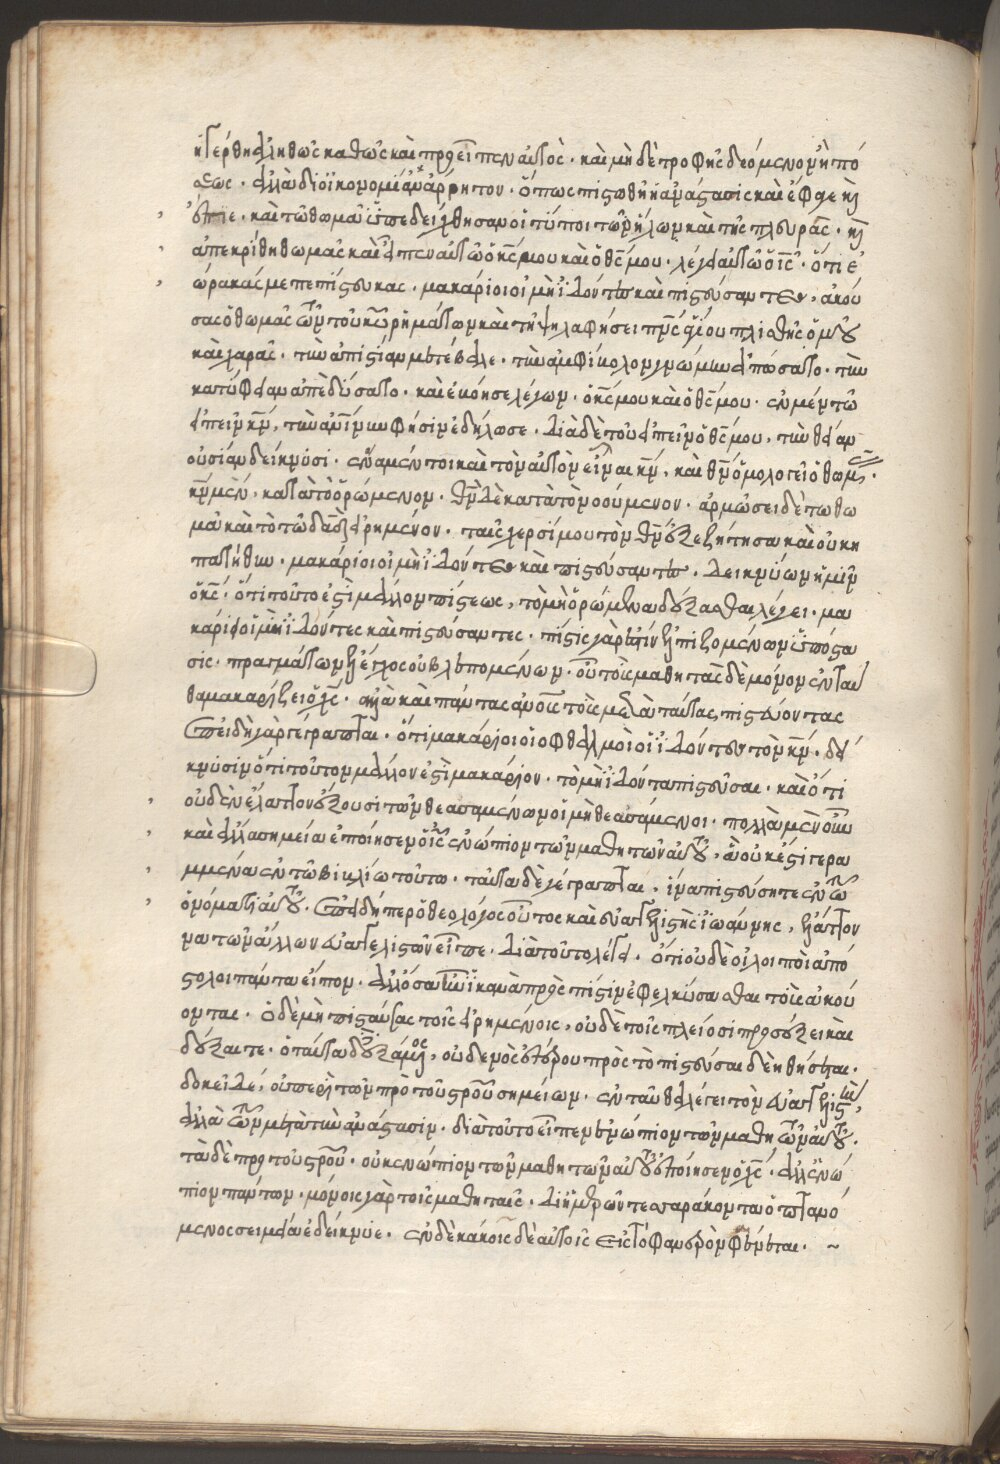 ἠγέρθη ἀληθῶς καθὼς καὶ προεῖπεν αὐτός · καὶ μὴ δὲ τροφῆς δεόμενον ἢ πό
σεως · ἀλλὰ δι οἰκονομίαν ἄρρητον · ὅπως πιστωθῇ ἡ ἀνάστασις καὶ ἔφαγε καὶ
ἔπιε · καὶ τῶ θωμᾶ ὑπεδείχθησαν οἱ τύποι τῶν ἥλων καὶ τῆς πλευρᾶς · καὶ
ἀπεκρίθη θωμᾶς καὶ εἶπεν αὐτῶ ὁ κς μου καὶ ὁ θς μου · λέγει αὐτῶ ὁ ις · ὅτι ἑ
ώρακάς με πεπίστευκας · μακάριοι οἱ μὴ ἰδόντες καὶ πιστεύσαντες · ἀκού
σας ὁ θωμᾶς τῶν τοῦ κυ ῥημάτων καὶ τῇ ψηλαφήσει
καὶ χαρᾶς · τὴν ἀπιστίαν μετέβαλε · τὴν ἀμφίβολον γνώμην ἀπώσατο · τὴν
κατήφειαν ἀπεδύσατο · καὶ ἐβόησε λέγων · ὁ κς μου καὶ ὁ θς μου · ἐν μὲν τῶ
εἰπεῖν κν, τὴν ἀνίνην φύσιν ἐδήλωσε · διὰ δὲ τοῦ εἰπεῖν ὁ θς μου, τὴν θείαν
οὐσίαν δείκνυσι · ἕνα μέν τοι καὶ τὸν αὐτὸν εἶναι κν, καὶ θν ὁμολογεῖ ὁ θωμᾶς ·
κν μὲν, κατὰ τὸ ὁρώμενον · θν δὲ κατὰ τὸ νοούμενον · ἁρμώσει δὲ τῶ θω
μᾶ καὶ τὸ τῶ δαδ εἰρημένον · ταῖς χερσί μου τὸν θν ἐξεζήτησα καὶ οὐκ ἠ
πατήθην · μακάριοι οἱ μὴ ἰδόντες καὶ πιστεύσαντες · δεικνύων ἡμῖν
ὁ κς · ὅτι τοῦτο ἐστὶ μᾶλλον πίστεως, τὸ μὴ ὁρώμενα δέξασθαι λέγει · μα
κάριοι οἱ μὴ ἰδόντες καὶ πιστεύσαντες · πίστις γάρ ἐστιν ἐλπιζομένων ὑπόστα
σις · πραγμάτων ἔλεγχος οὐ βλεπομένων · οὐ τοὺς μαθητὰς δὲ μόνον ἐνταῦ
θα μακαρίζει ὁ χς · ἀλλὰ καὶ πάντας αὐτοῦ τοὺς μετὰ ταῦτα πιστεύοντας
ἐπειδὴ γὰρ γέγραπται · ὅτι μακάριοι οἱ ὀφθαλμοὶ οἱ ἰδόντες τὸν κν · δεί
κνυσιν ὅτι τοῦτον μᾶλλον ἐστὶ μακάριον · τὸ μὴ ἰδόντα πιστεῦσαι · καὶ ὅτι
οὐδὲν ἔλαττον ἕξουσι τῶν θεασαμένων οἱ μὴ θεασάμενοι · πολλὰ μὲν οὖν
καὶ ἄλλα σημεῖα ἐποίησεν ὁ ις ἐνώπιον τῶν μαθητῶν αὐτοῦ, ἃ οὐκ ἔστι γεγρα
μμένα ἐν τῶ βιβλίω τούτω · ταῦτα δὲ γέγραπται, ἵνα πιστεύσητε ἐν τῶ
ὀνόματι αὐτοῦ · ἐπειδήπερ ὁ θεολόγος οὗτος καὶ εὐαγγελιστὴς ἰωάννης, ἔλαττον
α τῶν ἄλλων εὐαγγελιστῶν εἶπε · διὰ τοῦτο λέγει · ὅτι οὐδὲ οἱ λοιποὶ ἀπό
στολοι πάντα εἶπον · ἀλλ ὅσα ἦν ἱκανὰ πρὸς πίστιν ἐφελκύσασθαι τοὺς ἀκού
οντας · ὁ δὲ μὴ πιστεύσας τοῖς εἰρημένοις, οὐδὲ τοῖς πλείοσι προσέξει καὶ
δέξαιτο · ὁ ταῦτα δεξάμενος, οὐδενὸς ἑτέρου πρὸς τὸ πιστεῦσαι δεηθήσεται ·
δοκεῖ δέ, οὐ περὶ τῶν πρὸ τοῦ στρου σημείων · ἐνταῦθα λέγει τὸν εὐαγγελιστήν,
ἀλλὰ τῶν μετὰ τὴν ἀνάστασιν · διὰ τοῦτο εἶπεν ἐνώπιον τῶν μαθητῶν αὐτοῦ ·
τὰ δὲ πρὸ τοῦ στρου · οὐκ ἐνώπιον τῶν μαθητῶν αὐτοῦ ἐποίησεν ὁ χς · ἀλλ ἐνώ
πιον πάντων · μόνοις γὰρ τοῖς μαθηταῖς · δι ἡμερῶν τεσσαράκοντα ὀπτανό
μενος σημεῖα ἐδείκνυε · ~